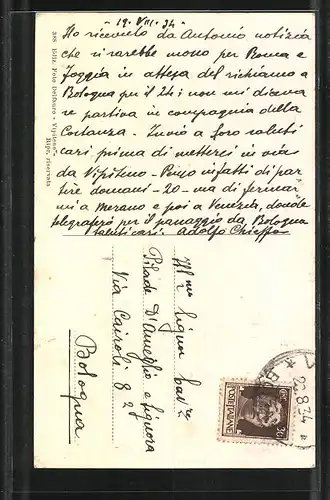 19. VIII. 34
Ho ricevuto da Antonio notizia
che si sarebbe mosso per Roma e
Foggia in attesa del richiamo a
Bologna per il 24; non mi diceva
se partiva in compagnia della
Costanza. Invio a loro saluti
cari prima di mettermi in via
da Vipiteno - Penso infatti di par
tire domani - 20 - ma di fermar
mi a Merano e poi a Venezia, donde
telegraferò per il passaggio da Bologna
saluti cari. Adolfo
388 Ediz. Foto - Vipiteno
Ripr. riservata
Ill.mo Signor Cav.re
D'Amelio e Signora
Via Cairoli 82
Bologna
POSTE ITALIANE
30